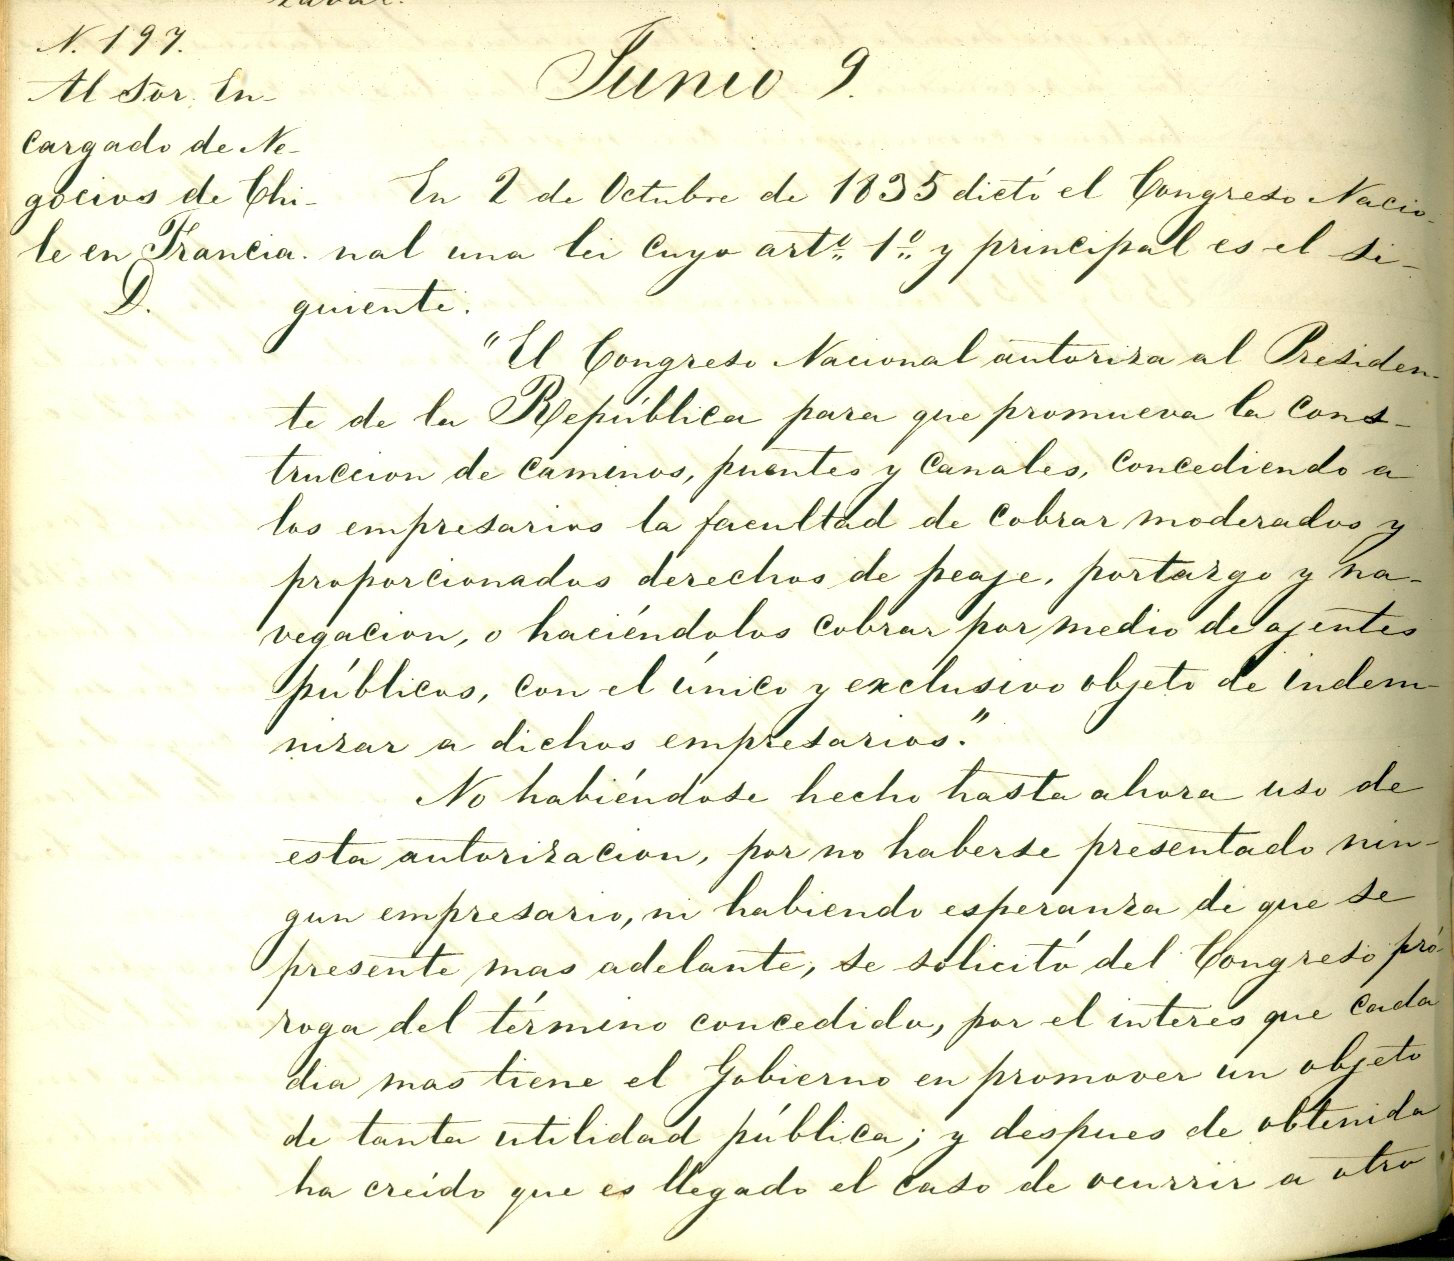 N. 197.
Al Sor. En-
cargado de Ne-
gocios de Chi-
le en Francia.
D.
Junio 9.
En 2 de Octubre de 1835 dictó el Congreso Nacio-
nal una lei cuyo arto. 1o. y principal es el si-
guiente.
"El Congreso Nacional autoriza al Presiden-
te de la República para que promueva la cons-
truccion de caminos, puentes y canales, concediendo a
los empresarios la facultad de cobrar moderados y
proporcionados derechos de peaje, portazgo y na-
vegacion, o haciéndolos cobrar por medio de ajentes
públicos, con el único y exclusivo objeto de indem-
nizar a dichos empresarios."
No habiéndose hecho hasta ahora uso de
esta autorizacion, por no haberse presentado nin-
gun empresario, ni habiendo esperanza de que se
presente mas adelante, se solicitó del Congreso pró-
roga del término concedido, por el interes que cada
dia mas tiene el Gobierno en promover un objeto
de tanta utilidad pública; y despues de obtenida
ha creido que es llegado el caso de ocurrir a otro